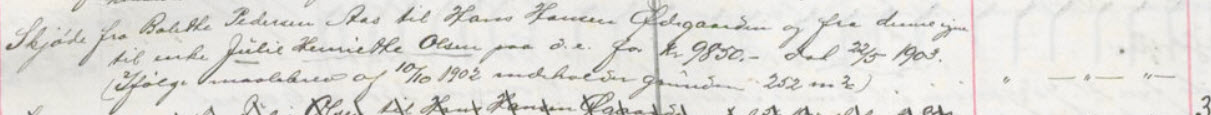 Skjøde fra Bolethe Pedersen Aas til Hans Hansen Ødegaarden og fra denne igjen
til enke Julie Henriette Olsen paa d.e. for Kr 9850.- Dat 22/5 1903.
(Ifølge maalebrev af 10/10 1902 indeholder grunden 252 m²) " — " — " —
Olsen til Hans Hansen
3